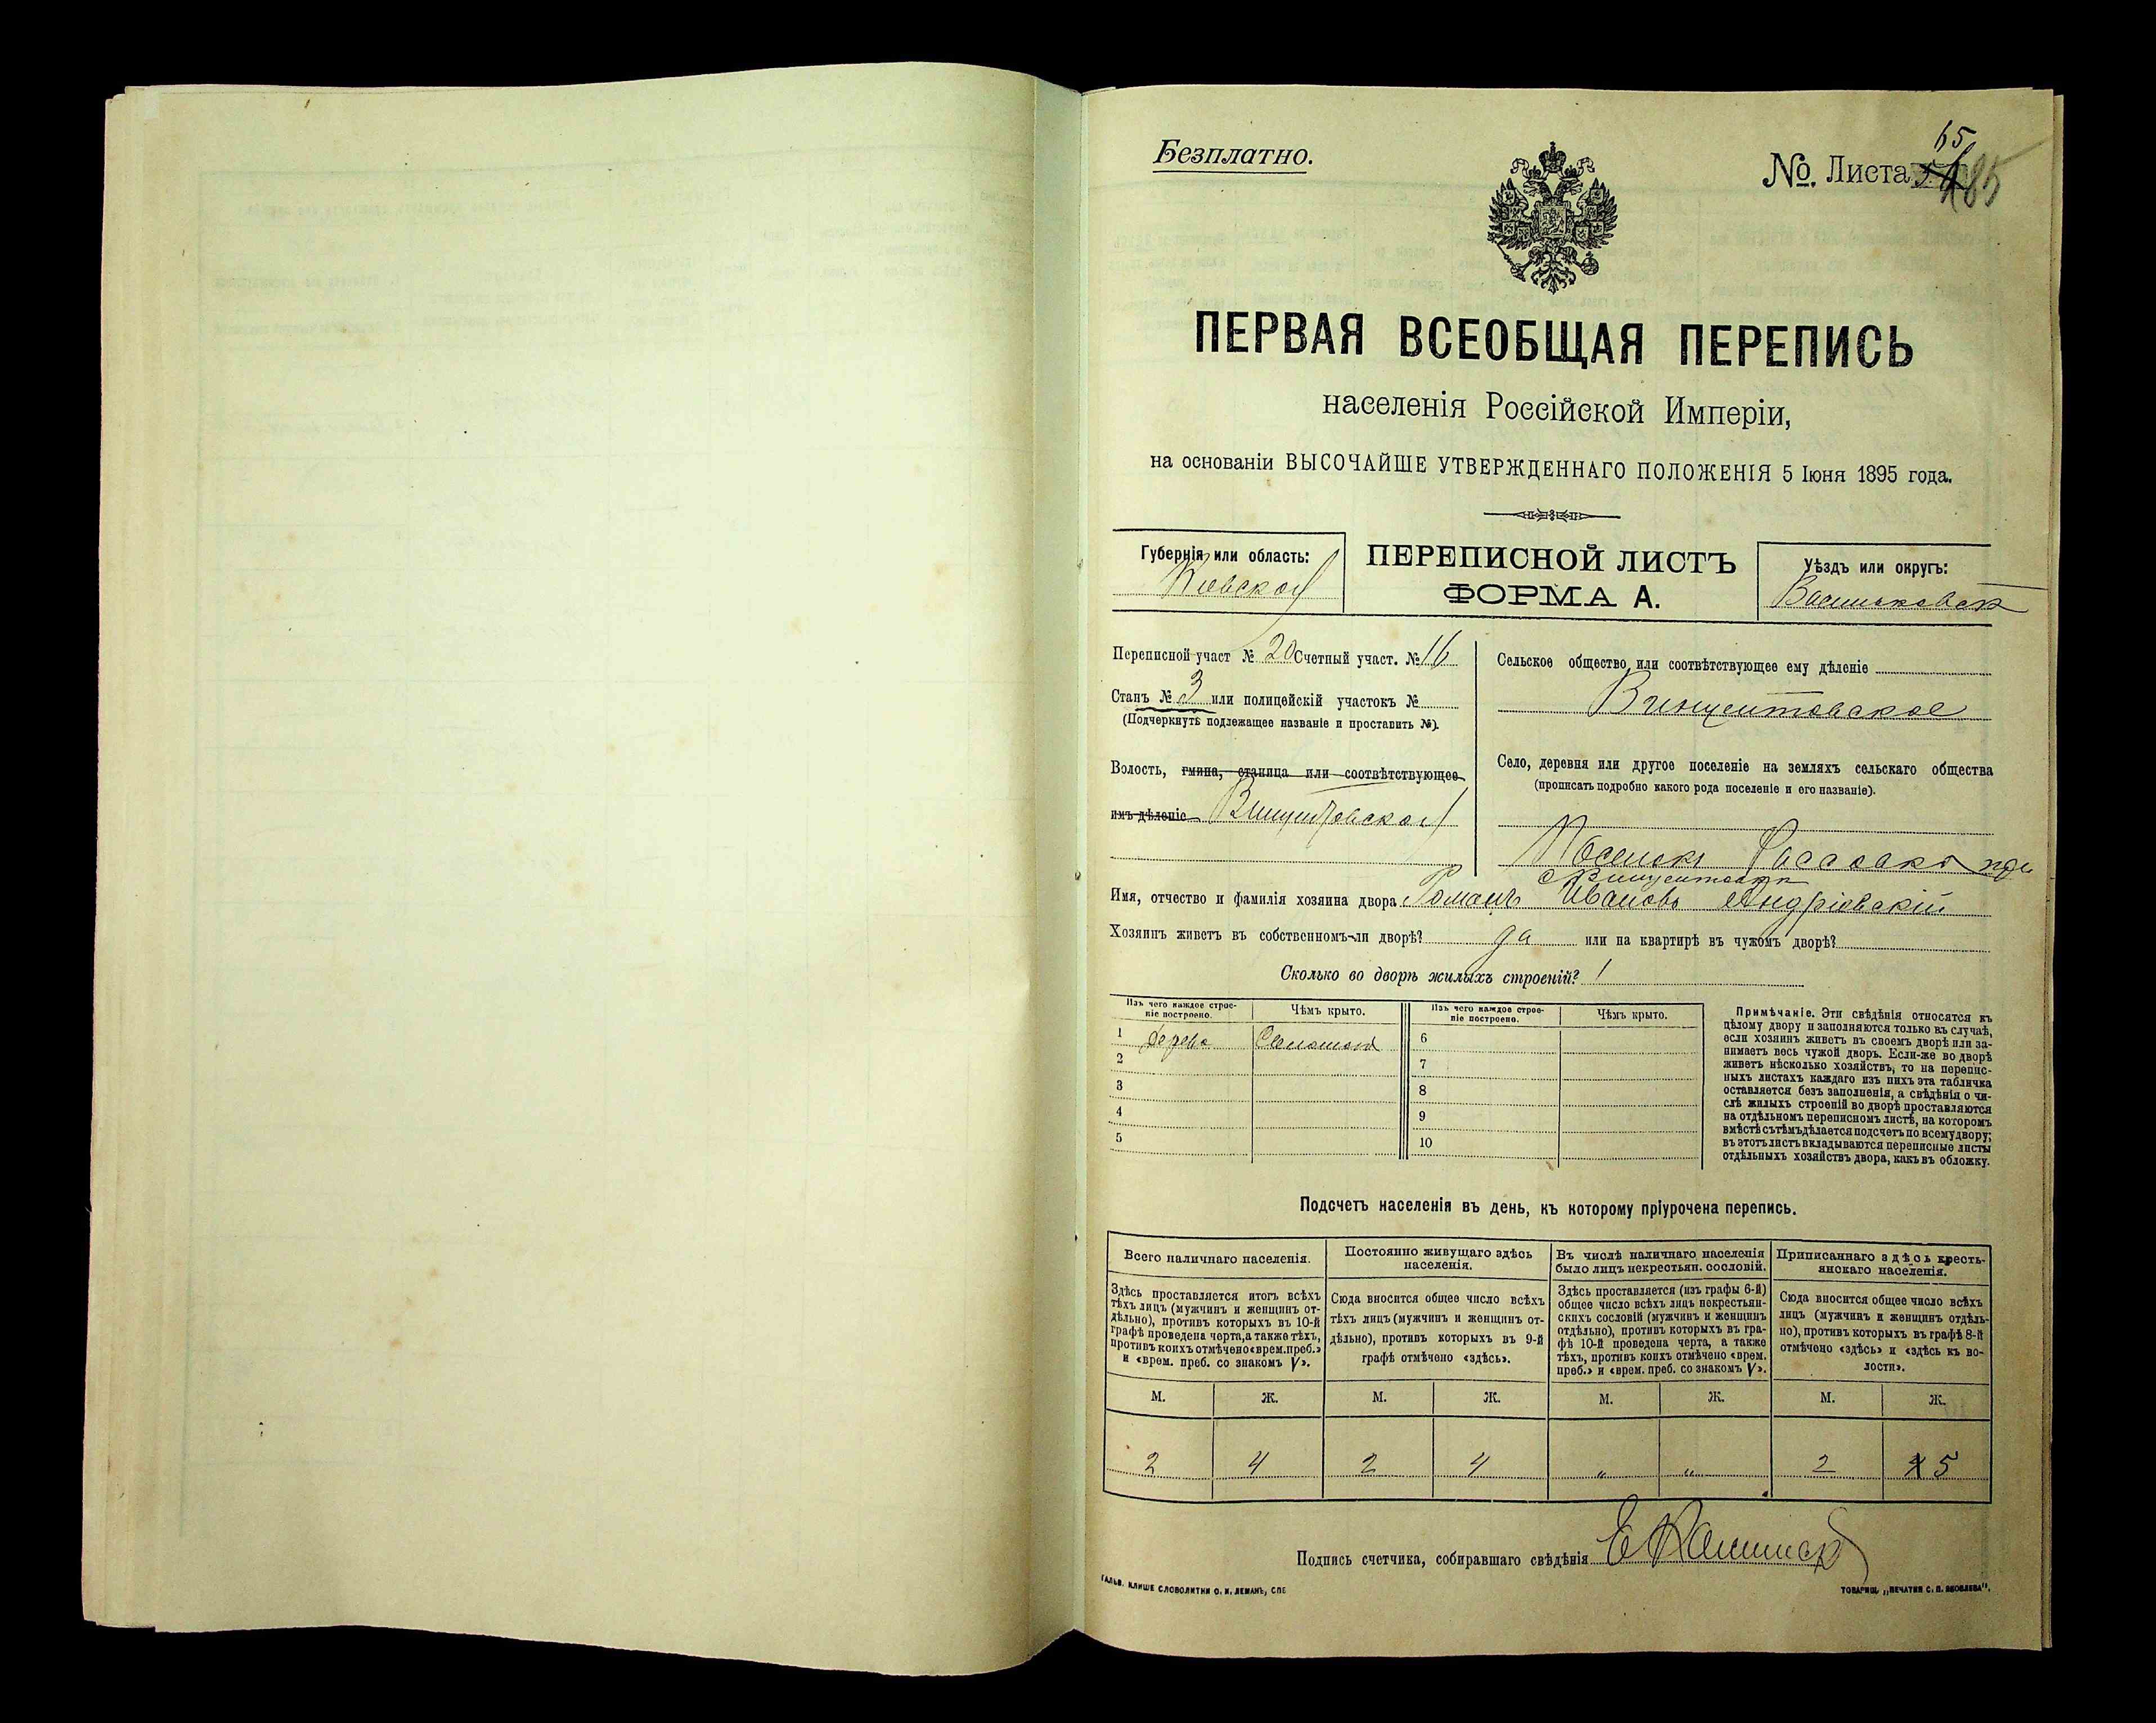 Безплатно.
№ Листа 65 185
ПЕРВАЯ ВСЕОБЩАЯ ПЕРЕПИСЬ
населенія Россійской Имперіи,
на основаніи ВЫСОЧАЙШЕ УТВЕРЖДЕННАГО ПОЛОЖЕНІЯ 5 Іюня 1895 года.
Губернія или область:
Киевской
ПЕРЕПИСНОЙ ЛИСТЪ
ФОРМА А.
Уѣздъ или округъ:
Васильковск
Переписной участ № 20 Счетный участ. № 16
Станъ № 3 или полицейскій участокъ №
(Подчеркнуть подлежащее названіе и проставить №).
Волость, гмина, станица или соотвѣтствующее
имъ дѣленіе Винцентовской
Сельское общество или соотвѣтствующее ему дѣленіе
Винцентовское
Село, деревня или другое поселеніе на земляхъ сельскаго общества
(прописать подробно какого рода поселеніе и его названіе).
Поселокъ при
с Винцентовки
Имя, отчество и фамилія хозяина двора Романъ Ивановъ Андріовскій
Хозяинъ живетъ въ собственномъ-ли дворѣ? да или на квартирѣ въ чужомъ дворѣ?
Сколько во дворѣ жилыхъ строеній? 1
Изъ чего каждое строе-
ніе построено.
Чѣмъ крыто.
Изъ чего каждое строе-
ніе построено.
Чѣмъ крыто.
1 дерева Соломой 6
2 7
3 8
4 9
5 10
Примѣчаніе. Эти свѣдѣнія относятся къ
цѣлому двору и заполняются только въ случаѣ,
если хозяинъ живетъ въ своемъ дворѣ или за-
нимаетъ весь чужой дворъ. Если-же во дворѣ
живетъ нѣсколько хозяйствъ, то на перепис-
ныхъ листахъ каждаго изъ нихъ эта табличка
оставляется безъ заполненія, а свѣдѣнія о чи-
слѣ жилыхъ строеній во дворѣ проставляются
на отдѣльномъ переписномъ листѣ, на которомъ
вмѣстѣ съ тѣмъ дѣлается подсчетъ по всему двору;
въ этотъ листъ вкладываются переписные листы
отдѣльныхъ хозяйствъ двора, какъ въ обложку.
Подсчетъ населенія въ день, къ которому пріурочена перепись.
Всего наличнаго населенія.
Здѣсь проставляется итогъ всѣхъ
тѣхъ лицъ (мужчинъ и женщинъ от-
дѣльно), противъ которыхъ въ 10-й
графѣ проведена черта, а также тѣхъ,
противъ коихъ отмѣчено «врем. преб.»
и «врем. преб. со знакомъ V».
Постоянно живущаго здѣсь
населенія.
Сюда вносится общее число всѣхъ
тѣхъ лицъ (мужчинъ и женщинъ от-
дѣльно), противъ которыхъ въ 9-й
графѣ отмѣчено «здѣсь».
Въ числѣ наличнаго населенія
было лицъ некрестьян. сословій.
Здѣсь проставляется (изъ графы 6-й)
общее число всѣхъ лицъ некрестьян-
скихъ сословій (мужчинъ и женщинъ
отдѣльно), противъ которыхъ въ гра-
фѣ 10-й проведена черта, а также
тѣхъ, противъ коихъ отмѣчено «врем.
преб.» и «врем. преб. со знакомъ V».
Приписаннаго здѣсь кресть-
янскаго населенія.
Сюда вносится общее число всѣхъ
лицъ (мужчинъ и женщинъ отдѣль-
но), противъ которыхъ въ графѣ 8-й
отмѣчено «здѣсь» и «здѣсь къ во-
лости».
М. Ж. М. Ж. М. Ж. М. Ж.
2 4 2 4 " " 2 4 5
Подпись счетчика, собиравшаго свѣдѣнія
ГАЛЬВ. КЛИШЕ СЛОВОЛИТНИ О. И. ЛЕМАНЪ, СПБ
ТОВАРИЩ. „ПЕЧАТНЯ С. П. ЯКОВЛЕВА".